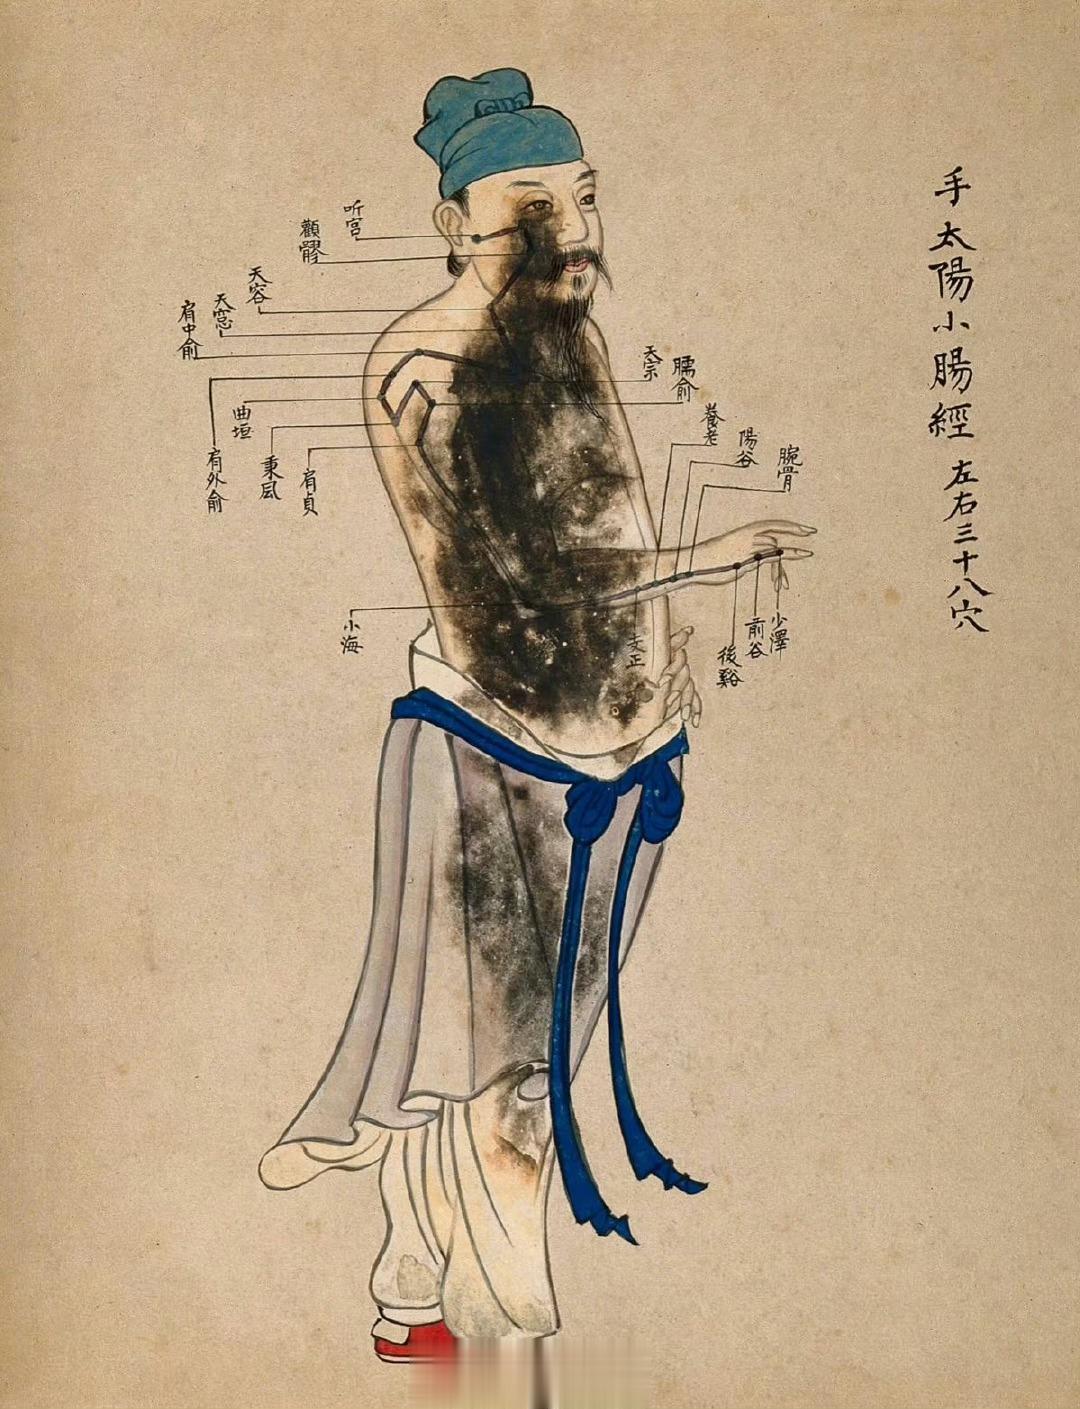 手太陽小腸經 左右三十八穴
听宮
顴髎
天容
天窓
肩中俞
肩外俞
曲垣
秉风
肩貞
天宗
臑俞
養老
陽谷
腕骨
小海
支正
後谿
前谷
少澤